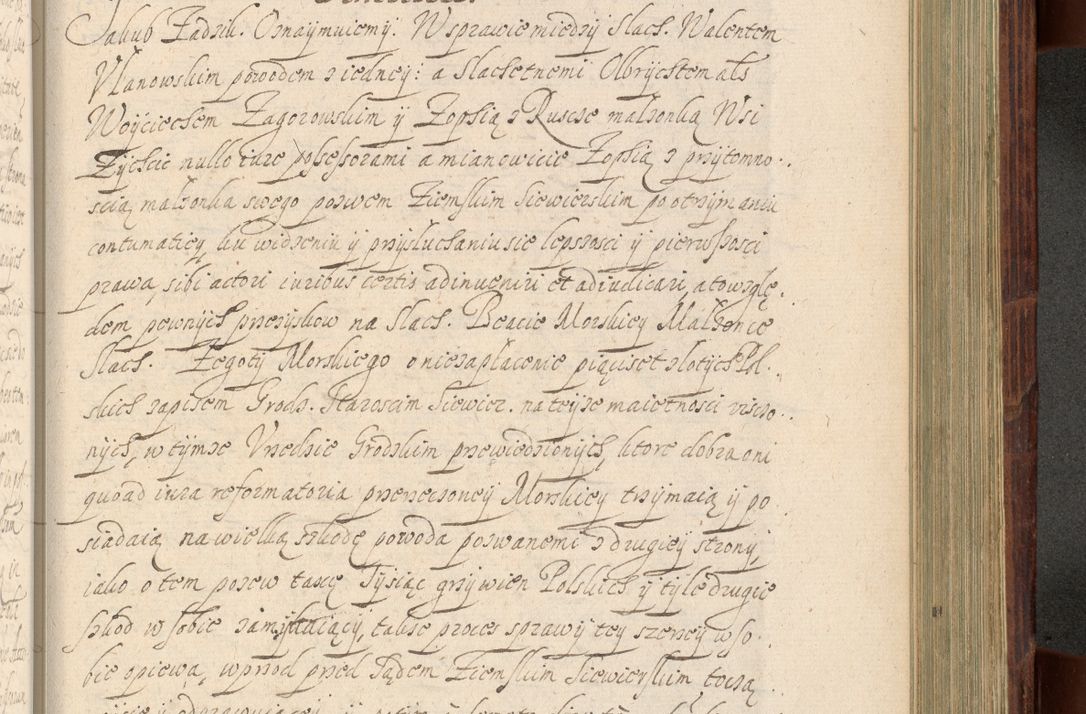 Jakub Zadzik. Oznaymuiemy. W sprawie miedzy Slach. Walentem
Vlanowskim powodem z iedney: a Slachetnemi Olbrychtem als
Woyciechem Zagorowskim y Zophią z Ruscse malzonką Wsi
Zychcic nullo iure possessorami a mianowicie Zophią z przytomno.
scią malzonka swego pozwem Ziemskim Siewierskim po otrzymaniu
contumaticy ku widzeniu y przysluchaniu sie lepszosci y pierwszosci
prawa, sibi actori iuribus certis adinueniri et adiudicari, a to wzglę.
dem pewnych przezyskow na Slach. Beacie Morskiey Malzonce
Slach. Zegoty Morskiego o niezaplacenie piąciset zlotych Pol.
skich zapisem Grodz. Staroscim Siewier. na teyze maietnosci
nych, w tymze Vrzedzie Grodzkim przewiedzionych, ktore dobra oni
quoad iura reformatoria przerzeczoney Morskiey trzymaią y po
siadaią na wielką szkodę powoda pozwanemi z drugiey strony,
iako o tem pozew taxę Tysiąc grzywien Polskich y tyle drugie
szkod w sobie zamykaiący, takze proces sprawy tey szerzey w so.
bie opiewa, wprzod przed Sądem Ziemskim Siewierskim toczą